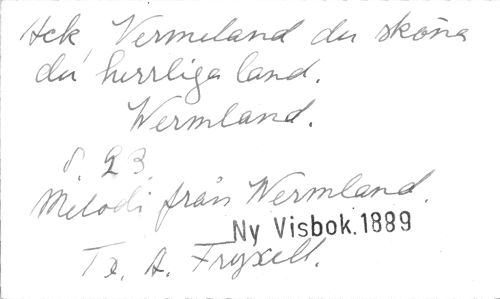 Ack, Vermeland du sköna
du herrliga land.
Wermland.
s. 23.
Melodi från Wermland.
Ny Visbok.1889
Tx. A. Fryxell.